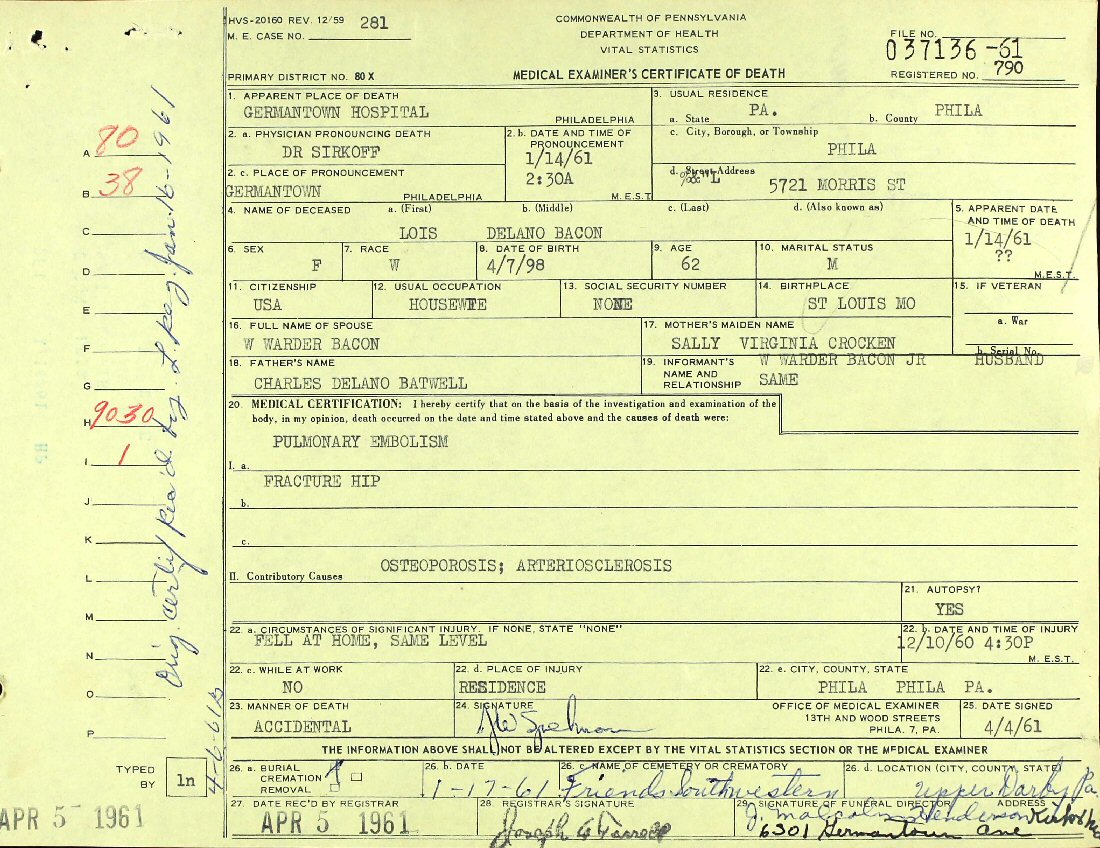 HVS-20160 REV. 12/59 281
M. E. CASE NO.
COMMONWEALTH OF PENNSYLVANIA
DEPARTMENT OF HEALTH
VITAL STATISTICS
FILE NO.
037136-61
REGISTERED NO. 790
PRIMARY DISTRICT NO. 80 X
MEDICAL EXAMINER'S CERTIFICATE OF DEATH
1. APPARENT PLACE OF DEATH
GERMANTOWN HOSPITAL
PHILADELPHIA
3. USUAL RESIDENCE
a. State PA. b. County PHILA
2. a. PHYSICIAN PRONOUNCING DEATH
DR SIRKOFF
2. b. DATE AND TIME OF PRONOUNCEMENT
1/14/61
2:30A
M.E.S.T.
c. City, Borough, or Township
PHILA
2. c. PLACE OF PRONOUNCEMENT
GERMANTOWN
PHILADELPHIA
d. Street Address
5721 MORRIS ST
4. NAME OF DECEASED a. (First) b. (Middle) c. (Last) d. (Also known as)
LOIS DELANO BACON
5. APPARENT DATE AND TIME OF DEATH
1/14/61
??
M.E.S.T.
6. SEX
F
7. RACE
W
8. DATE OF BIRTH
4/7/98
9. AGE
62
10. MARITAL STATUS
M
11. CITIZENSHIP
USA
12. USUAL OCCUPATION
HOUSEWIFE
13. SOCIAL SECURITY NUMBER
NONE
14. BIRTHPLACE
ST LOUIS MO
15. IF VETERAN
a. War
b. Serial No.
16. FULL NAME OF SPOUSE
W WARDER BACON
17. MOTHER'S MAIDEN NAME
SALLY VIRGINIA CROCKEN
18. FATHER'S NAME
CHARLES DELANO BATWELL
19. INFORMANT'S NAME AND RELATIONSHIP
W WARDER BACON JR HUSBAND
SAME
20. MEDICAL CERTIFICATION: I hereby certify that on the basis of the investigation and examination of the
body, in my opinion, death occurred on the date and time stated above and the causes of death were:
PULMONARY EMBOLISM
I. a.
FRACTURE HIP
b.
c.
OSTEOPOROSIS; ARTERIOSCLEROSIS
II. Contributory Causes
21. AUTOPSY?
YES
22. a. CIRCUMSTANCES OF SIGNIFICANT INJURY. IF NONE, STATE "NONE"
FELL AT HOME, SAME LEVEL
22. b. DATE AND TIME OF INJURY
12/10/60 4:30P
M. E.S.T.
22. c. WHILE AT WORK
NO
22. d. PLACE OF INJURY
RESIDENCE
22. e. CITY, COUNTY, STATE
PHILA PHILA PA.
23. MANNER OF DEATH
ACCIDENTAL
24. SIGNATURE
OFFICE OF MEDICAL EXAMINER
13TH AND WOOD STREETS
PHILA. 7, PA.
25. DATE SIGNED
4/4/61
THE INFORMATION ABOVE SHALL NOT BE ALTERED EXCEPT BY THE VITAL STATISTICS SECTION OR THE MEDICAL EXAMINER
26. a. BURIAL
CREMATION
REMOVAL
26. b. DATE
1-17-61
26. c. NAME OF CEMETERY OR CREMATORY
Friends Southwestern
26. d. LOCATION (CITY, COUNTY, STATE)
Upper Darby Pa
27. DATE REC'D BY REGISTRAR
APR 5 1961
28. REGISTRAR'S SIGNATURE
29. SIGNATURE OF FUNERAL DIRECTOR ADDRESS
J. Malcolm Henderson
6301 Germantown Ave
A 70
B 38
C
D
E
F
G
H 9030
I 1
J
K
L
M
N
O
P
TYPED BY ln
APR 5 1961